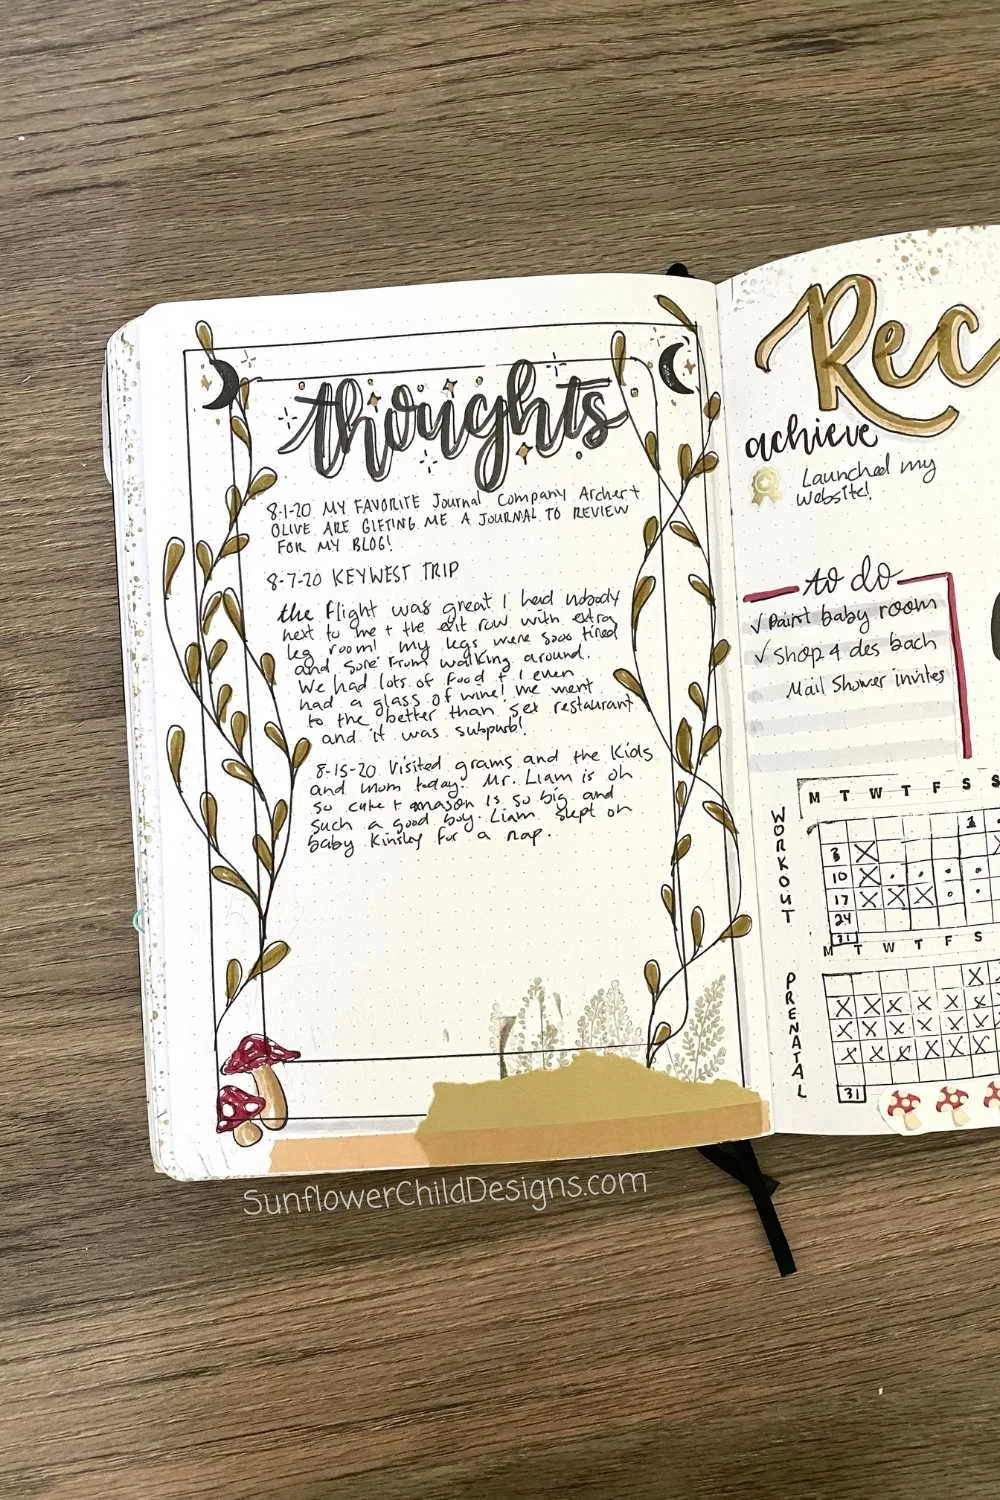 thoughts
8-1-20 MY FAVORITE Journal Company Archer +
OLIVE ARE GIFTING ME A JOURNAL TO REVIEW
FOR MY BLOG!
8-7-20 KEYWEST TRIP
the flight was great I had nobody
next to me + the exit row with extra
leg room! my legs were sooo tired
and sore from walking around.
We had lots of food + I even
had a glass of wine! we went
to the better than sex restaurant
and it was subpurb!
8-15-20 Visited grams and the kids
and mom today. Mr. Liam is oh
so cute + mason is so big and
such a good boy. Liam slept on
baby Kinsley for a nap.
SunflowerChildDesigns.com
Rec
achieve
Launched my
website!
to do
✓ Paint baby room
✓ Shop 4 des bach
Mail Shower invites
WORKOUT
M T W T F S S
1
3
10
17
24
31
PRENATAL
M T W T F S
31